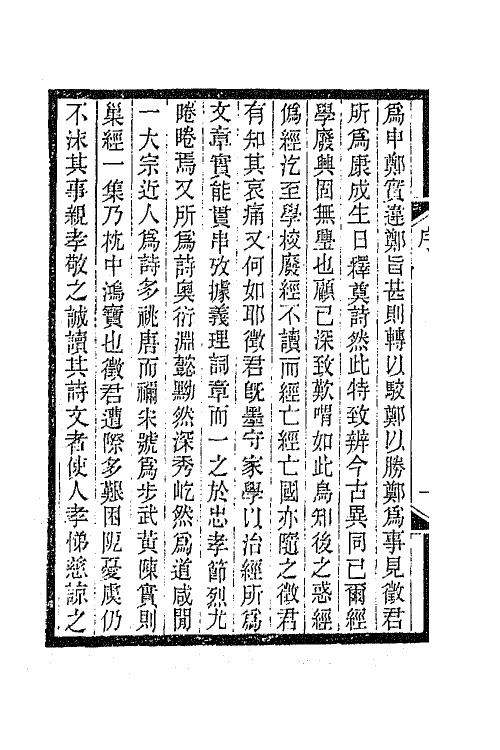 爲申鄭實違鄭旨甚則轉以駮鄭以勝鄭爲事見徵君
所爲康成生日釋奠詩然此特致辨今古異同已爾經
學廢興固無舋也顧已深致歎喟如此烏知後之惑經
僞經汔至學校廢經不讀而經亡經亡國亦隨之徵君
有知其哀痛又何如耶徵君旣墨守家學以治經所爲
文章實能貫串攷據義理詞章而一之於忠孝節烈尤
睠睠焉又所爲詩奧衍淵懿黝然深秀屹然爲道咸閒
一大宗近人爲詩多祧唐而禰宋號爲步武黃陳實則
巢經一集乃枕中鴻寶也徵君遭際多艱困阨憂虞仍
不沫其事親孝敬之誠讀其詩文者使人孝悌慈諒之
序
一